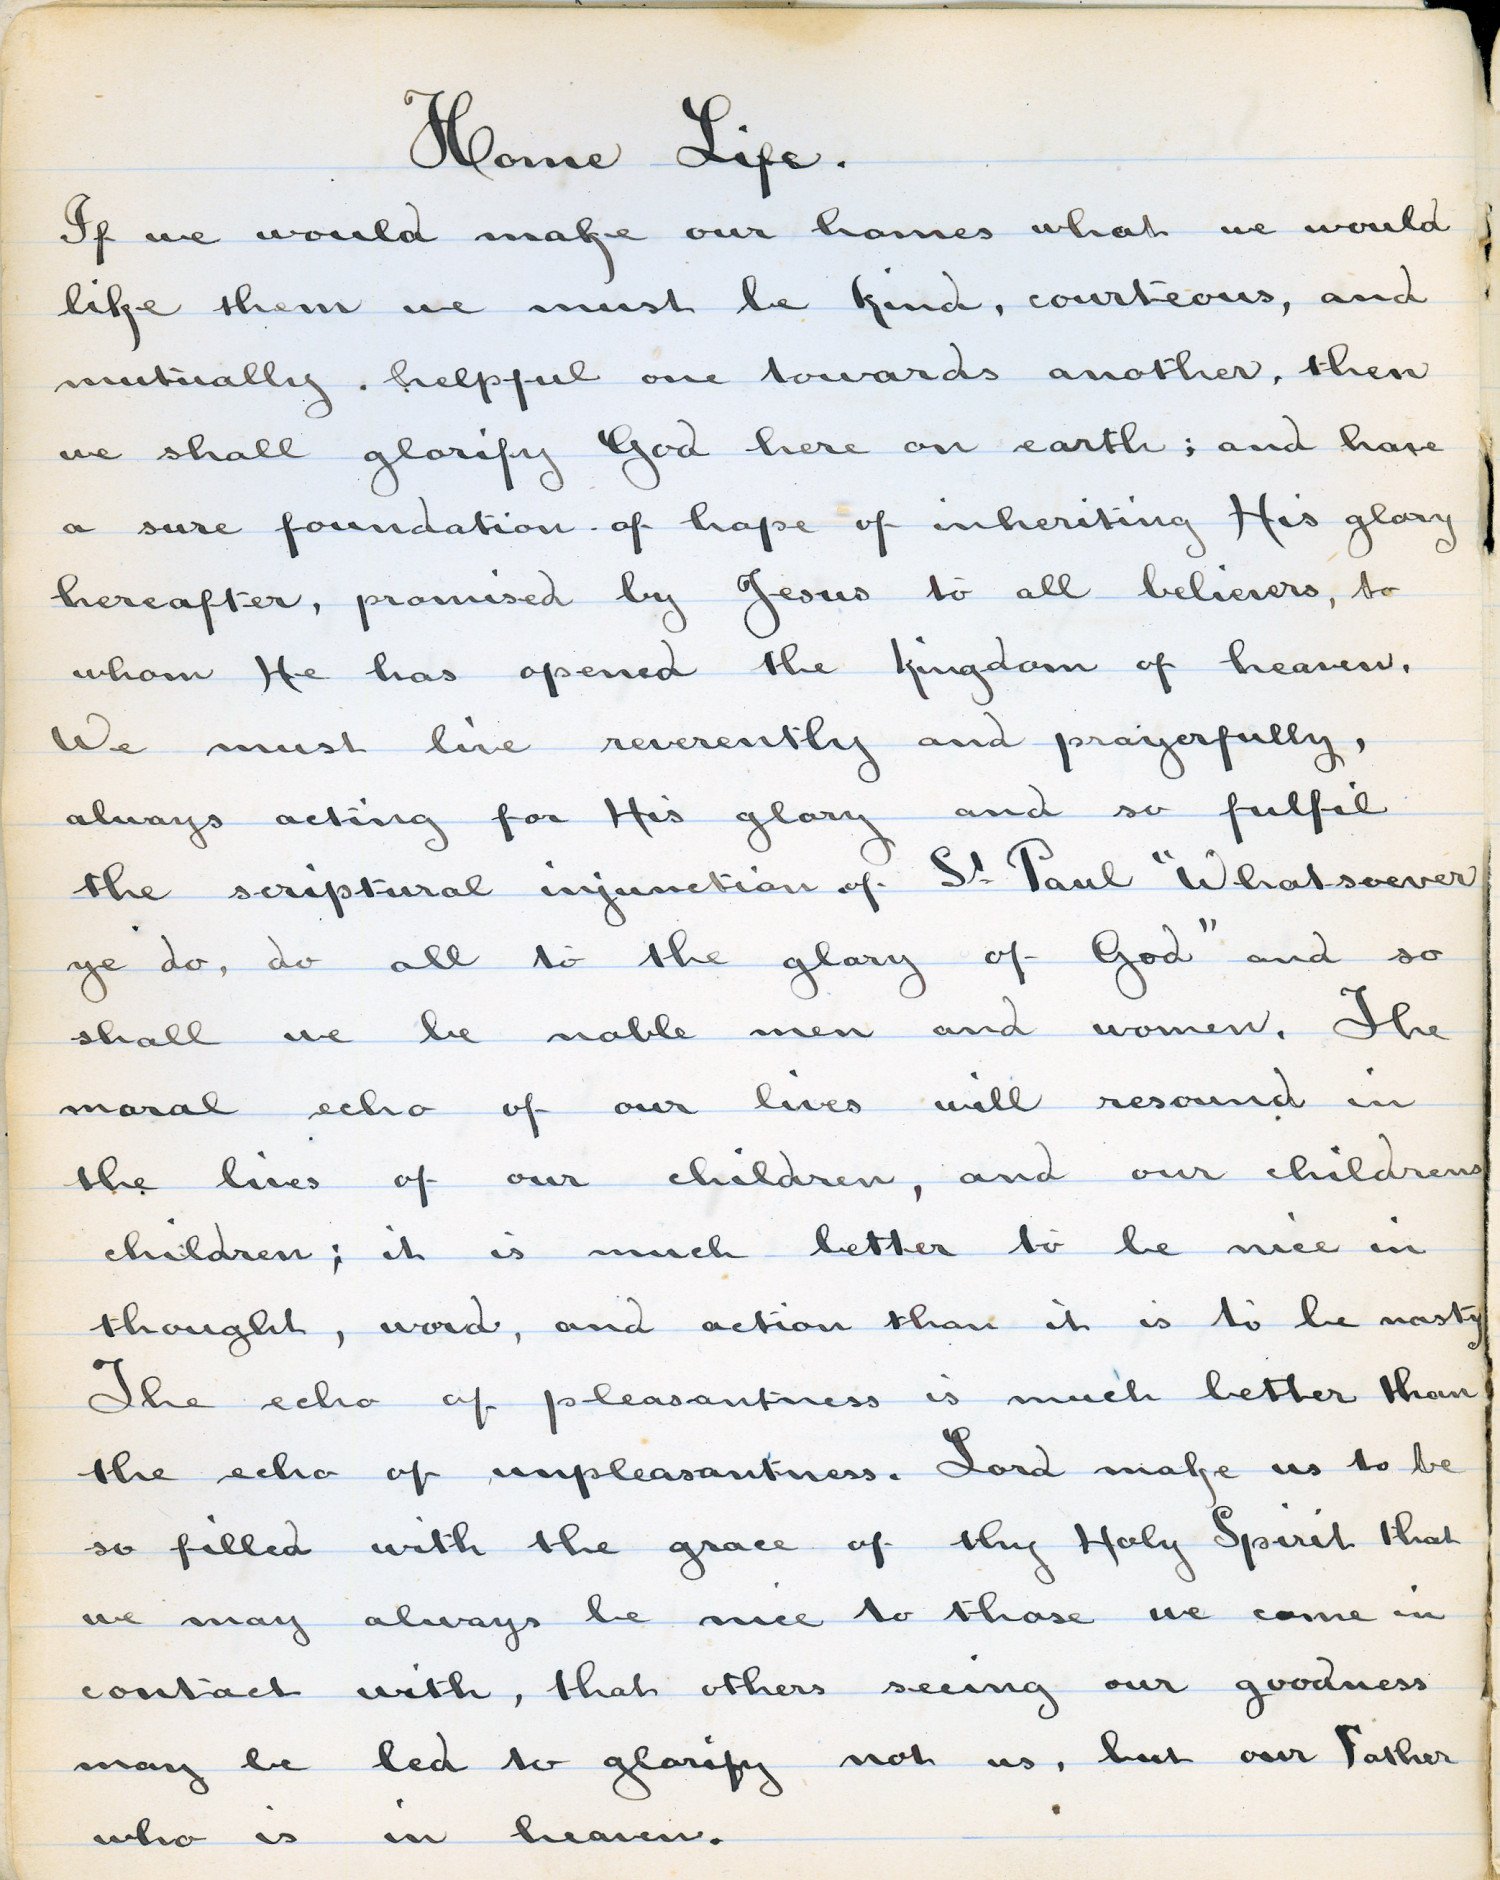 Home Life.
If we would make our homes what we would
like them we must be kind, courteous, and
mutually. helpful one towards another, then
we shall glorify God here on earth; and have
a sure foundation of hope of inheriting His glory
hereafter, promised by Jesus to all believers, to
whom He has opened the kingdom of heaven.
We must live reverently and prayerfully,
always acting for His glory and so fulfil
the scriptural injunction of St Paul "Whatsoever
ye do, do all to the glory of God" and so
shall we be noble men and women. The
moral echo of our lives will resound in
the lives of our children, and our childrens
children; it is much better to be nice in
thought, word, and action than it is to be nasty
The echo of pleasantness is much better than
the echo of unpleasantness. Lord make us to be
so filled with the grace of thy Holy Spirit that
we may always be nice to those we come in
contact with, that others seeing our goodness
may be led to glorify not us, but our Father
who is in heaven.